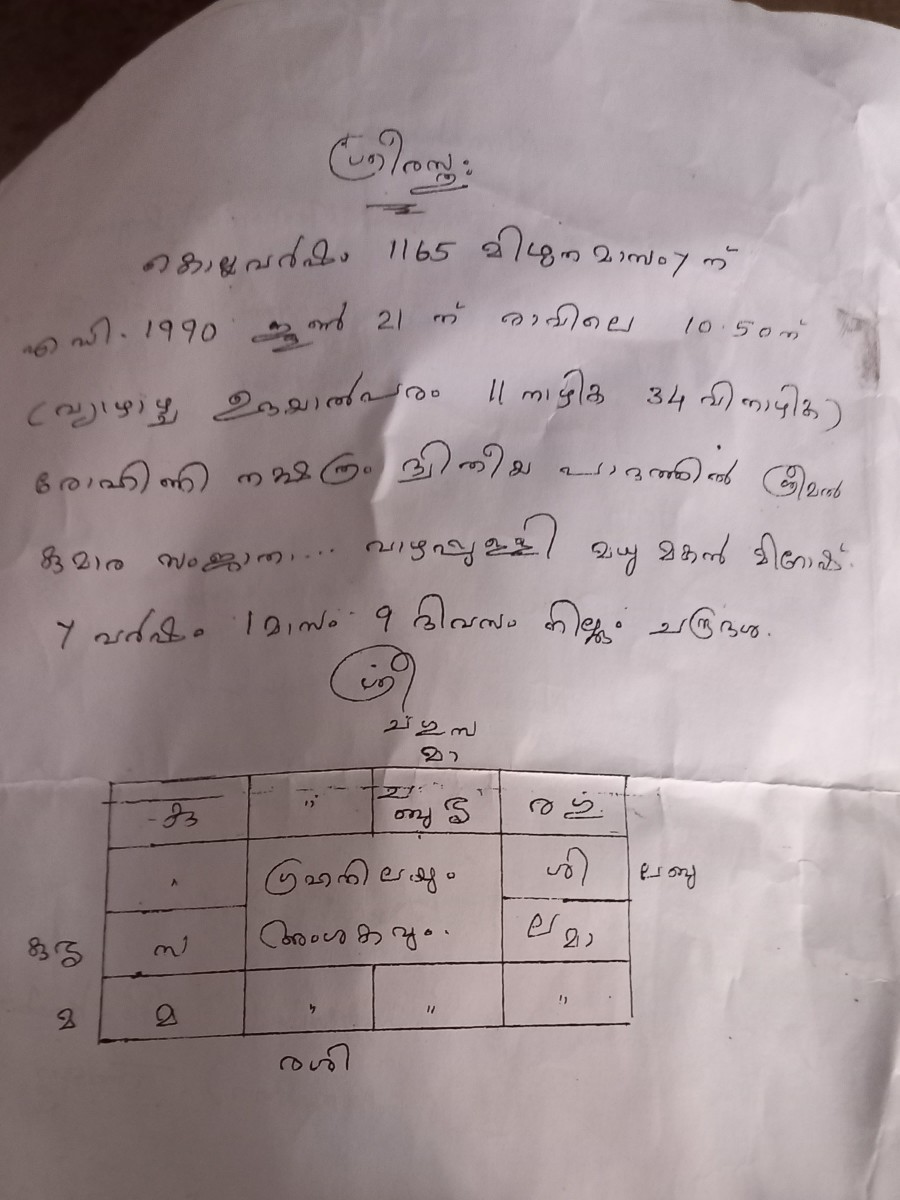 ശ്രീരസ്തു:
കൊല്ലവർഷം 1165 മിഥുനമാസം 7 ന്
എ ഡി. 1990 ജൂൺ 21 ന് രാവിലെ 10.50ന്
(വ്യാഴാഴ്ച ഉദയാൽപരം 11 നാഴിക 34 വിനാഴിക)
രോഹിണി നക്ഷത്രം ദ്വിതീയ പാദത്തിൽ ശ്രീമൽ
കുമാര സംജാതാ... വാഴപ്പുള്ളി മധു മകൻ
7 വർഷം 1 മാസം 9 ദിവസം നില്ക്കും ചന്ദ്രദശ.
ശ്രീ
ച ഗു സ
മാ
കു " ച ബു ശു ര ഗു
ഗ്രഹനിലയും ശി ല ബു
കു ശു സ അംശകവും. ല മാ
മ മ " " "
ര ശി